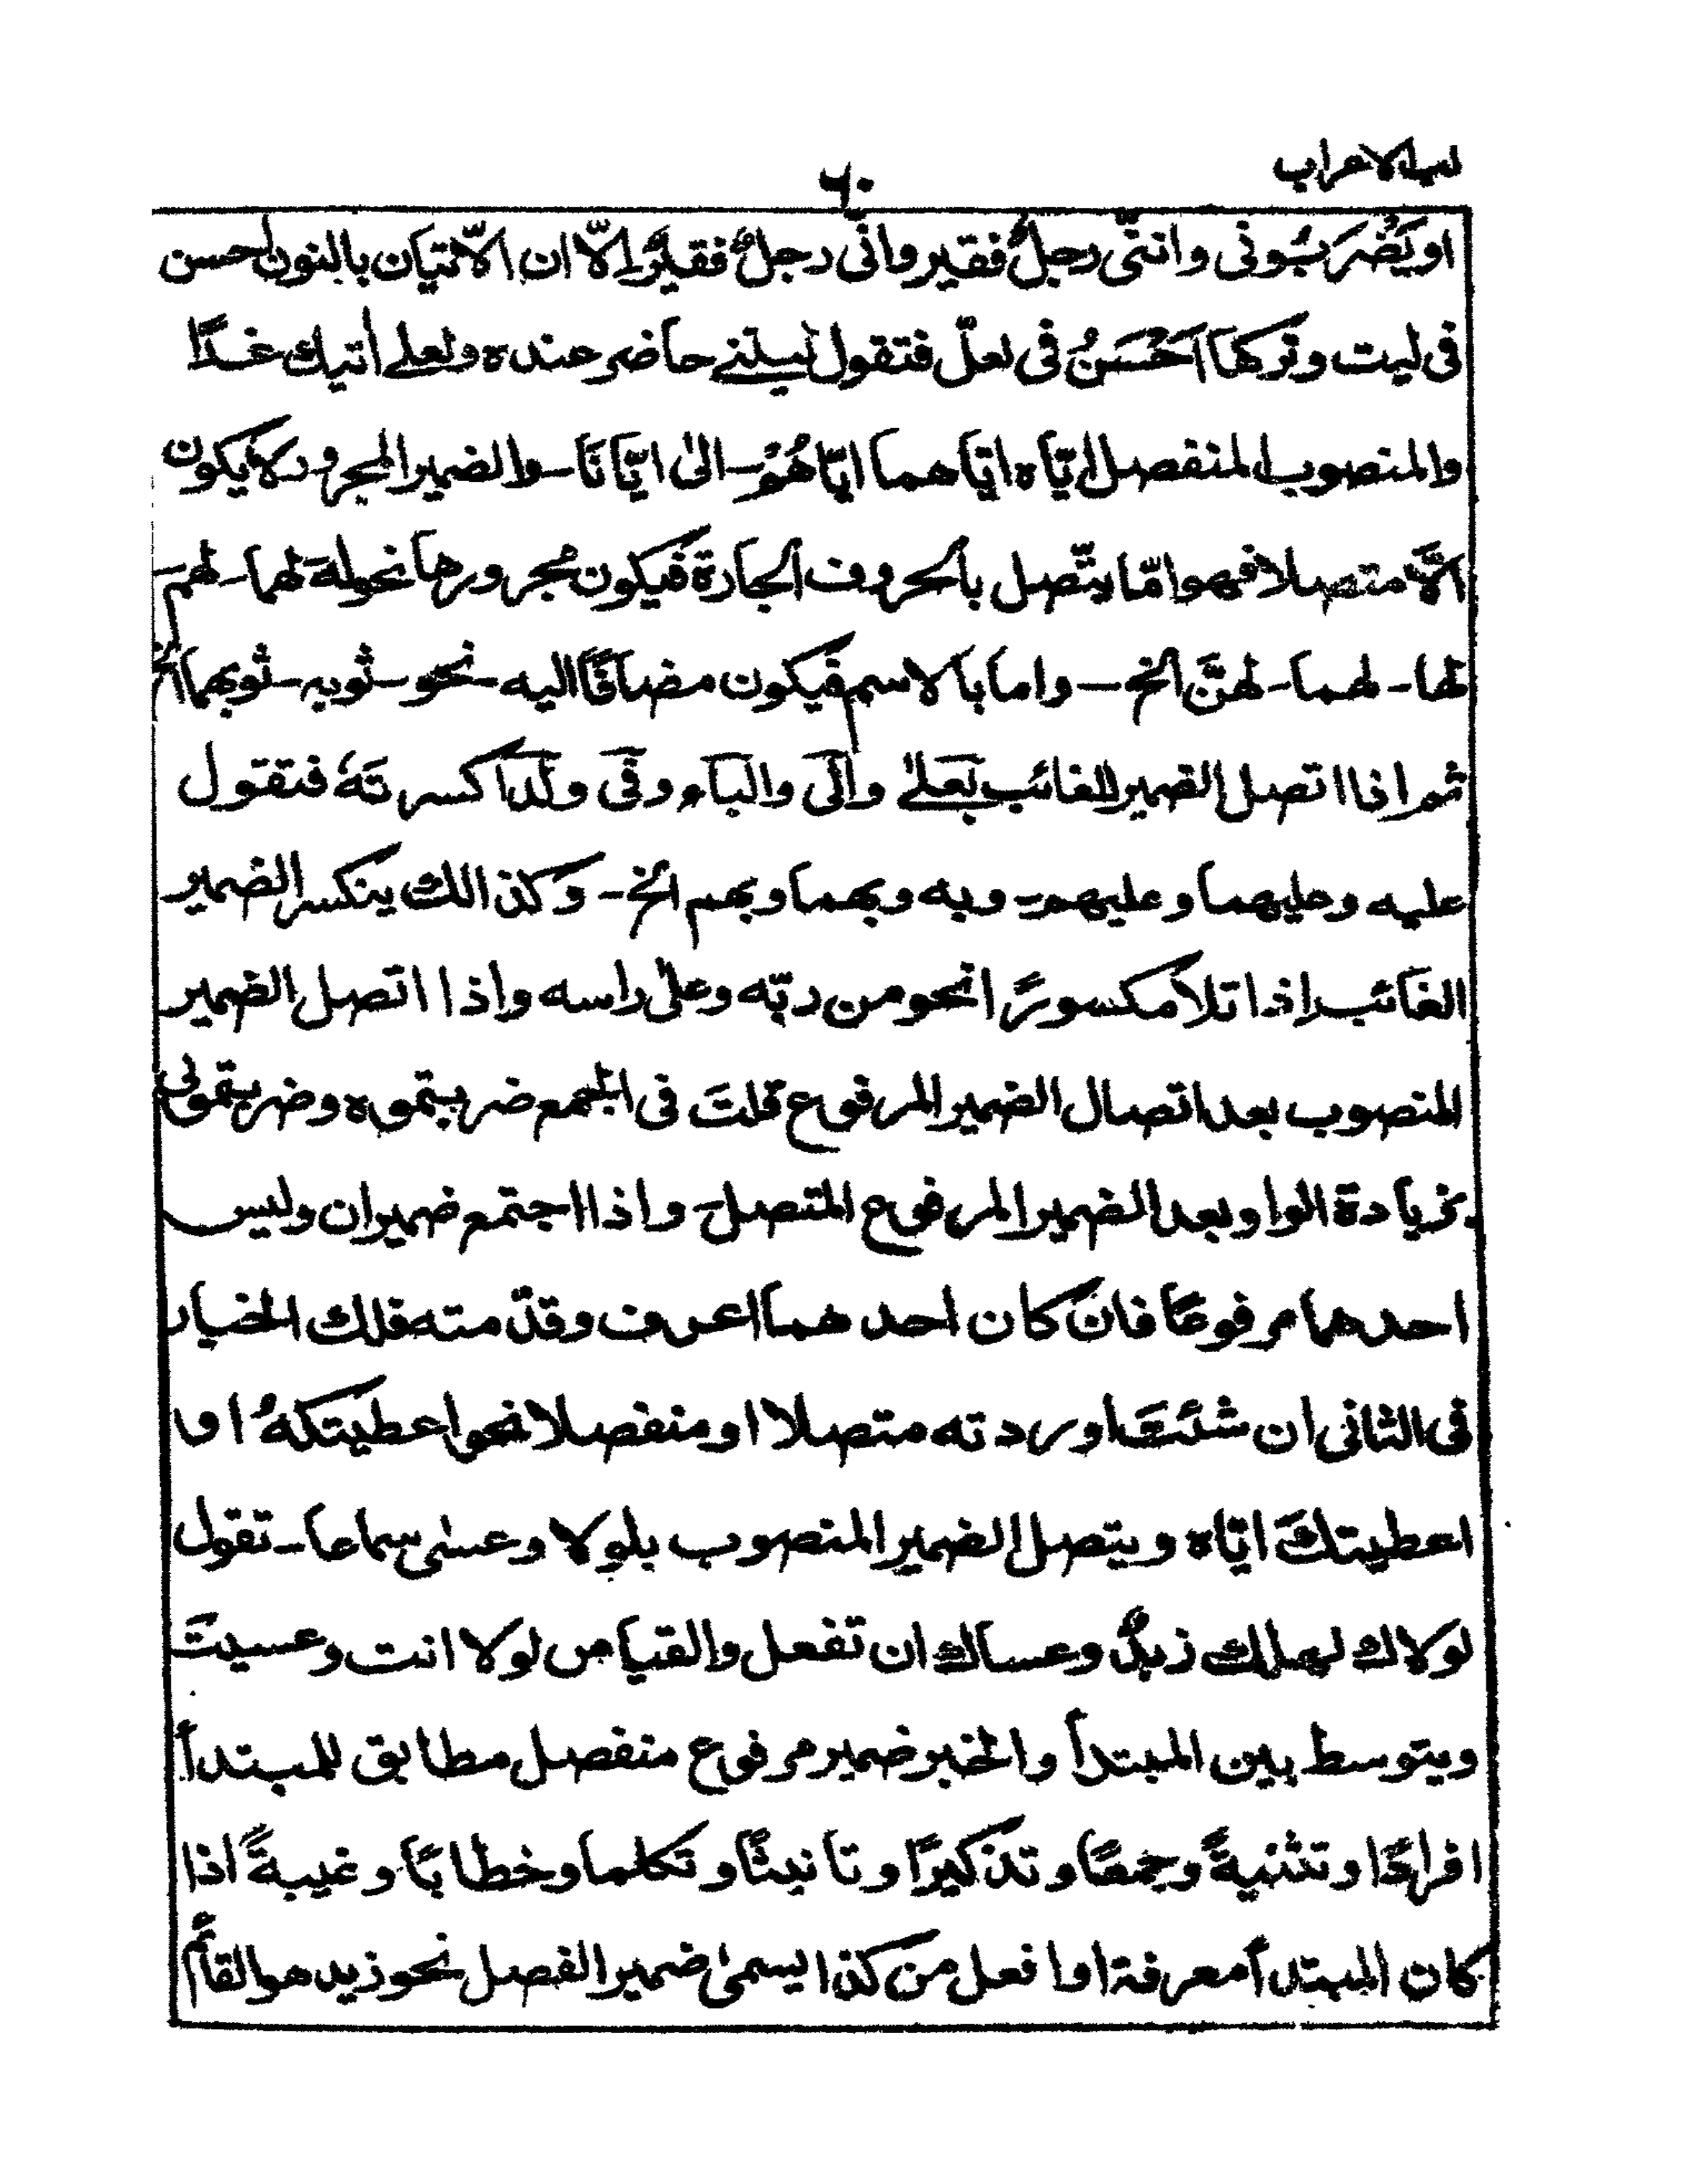 لب الاعراب
٦٠
او يَضْرَبُونى وانتى رجلٌ فقير وانّى رجلٌ فقيرٌ الّا ان الاتيان بالنون احسن
فى ليت وتركها احْسَنُ فى لعلّ فتقول ليتنى حاضر عنده ولعلى أتيك غدًا
والمنصوب المنفصل ايّاه ايّاهما ايّاهُمْ - الىٰ ايّانَا - والضمير المجرور لا يكون
الَّا متصلا فهو امّا يتّصل بالحروف الجارة فيكون مجرورها نحو له لهما - لهم
لها - لهما - لهنَّ الخ - واما بالاسم فيكون مضافًا اليه - نحو - ثوبه - ثوبهما الخ
ثم اذا اتصل الضمير الغائب بعلىٰ والى والباء وفى ولدا كسرته فتقول
عليه وعليهما وعليهم - وبه وبهما وبهم الخ - وكذالك ينكسر الضمير
الغائب اذا تلا مكسورًا نحو من ربّه وعلىٰ راسه واذا اتصل الضمير
المنصوب بعد اتصال الضمير المرفوع قلتَ فى الجمع ضربتموه وضربتمونى
بزيادة الواو بعد الضمير المرفوع المتصل - واذا اجتمع ضميران وليس
احدهما مرفوعًا فان كان احدهما اعرف وقدّمته فلك الخيار
فى الثانى ان شئتَ اوردته متصلا او منفصلا نحو اعطيتكهُ او
اعطيتكَ ايّاه ويتصل الضمير المنصوب بلولا وعسىٰ سماعا - تقول
لولاك لهلك زيدٌ وعساك ان تفعل والقياس لولا انت وعسيتَ
ويتوسط بين المبتدأ والخبر ضمير مرفوع منفصل مطابق للمبتدأ
افرادًا وتثنيةً وجمعًا وتذكيرًا وتانيثًا وتكلما وخطابًا وغيبةً اذا
كان المبتدأ معرفة او افعل من كذا يسمىٰ ضمير الفصل نحو زيد هو القائم